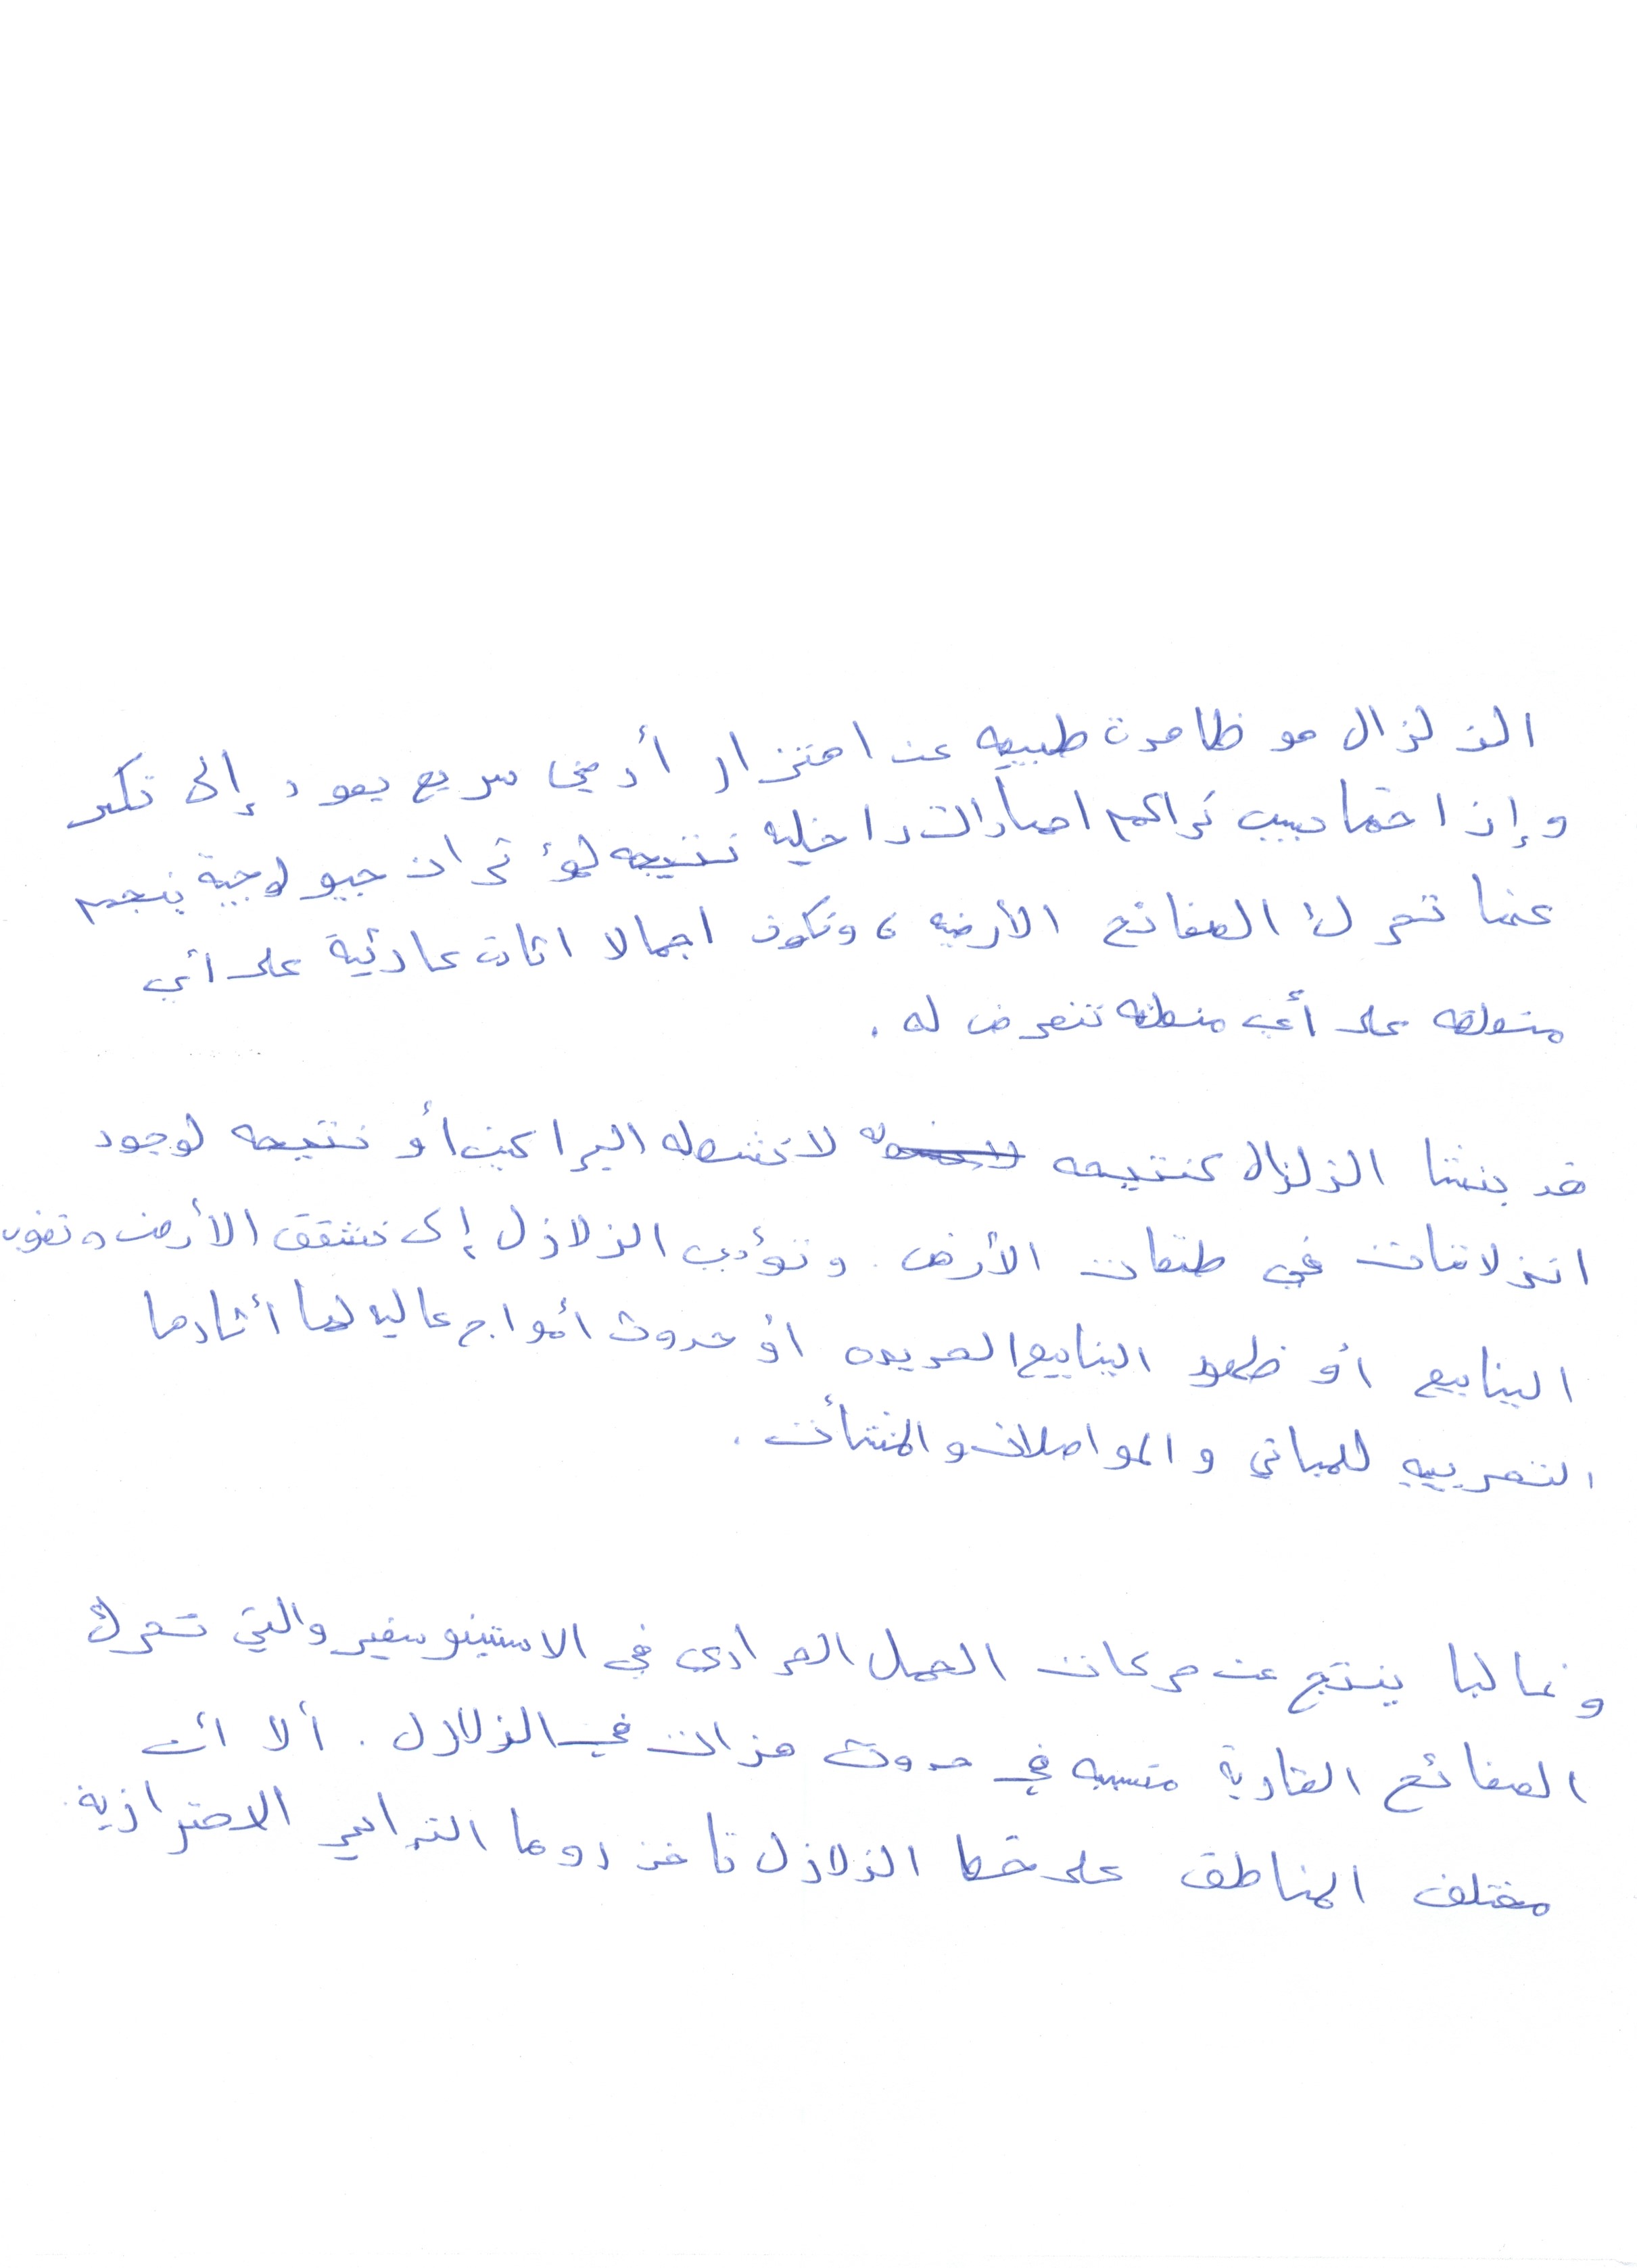 الزلزال هو ظاهرة طبيعيه عن اهتزاز أرضي سريع يعود إلى تكسر
وإزاحتها بسبب تراكم اجهادات داخليه نتيجه لمؤثرات جيولوجية ينجم
عنها تحرك الصفائح الأرضيه ، وتكون اجمالا اثار عادئية على أي
منطقه على أي منطقه تتعرض له .
قد ينشا الزلزال كنتيجه لانشطه البراكين أو نتيجه لوجود
انزلاقات في طبقات الأرض . وتؤدي الزلازل إلى تشقق الأرض ونضوب
الينابيع أو ظهور الينابيع الجديده أو حدوث أمواج عاليه لها أثارها
التخريبيه للمباني والمواصلات والمنشأت .
وغالبا ينتج عن حركات الحمل الحراري في الاستينوسفير والتي تحرك
الصفائح القارية متسببه في حدوث هزات في الزلازل . ألا أن
مختلف المناطق على خط الزلازل تأخذ دوما التدابير الاحترازية .